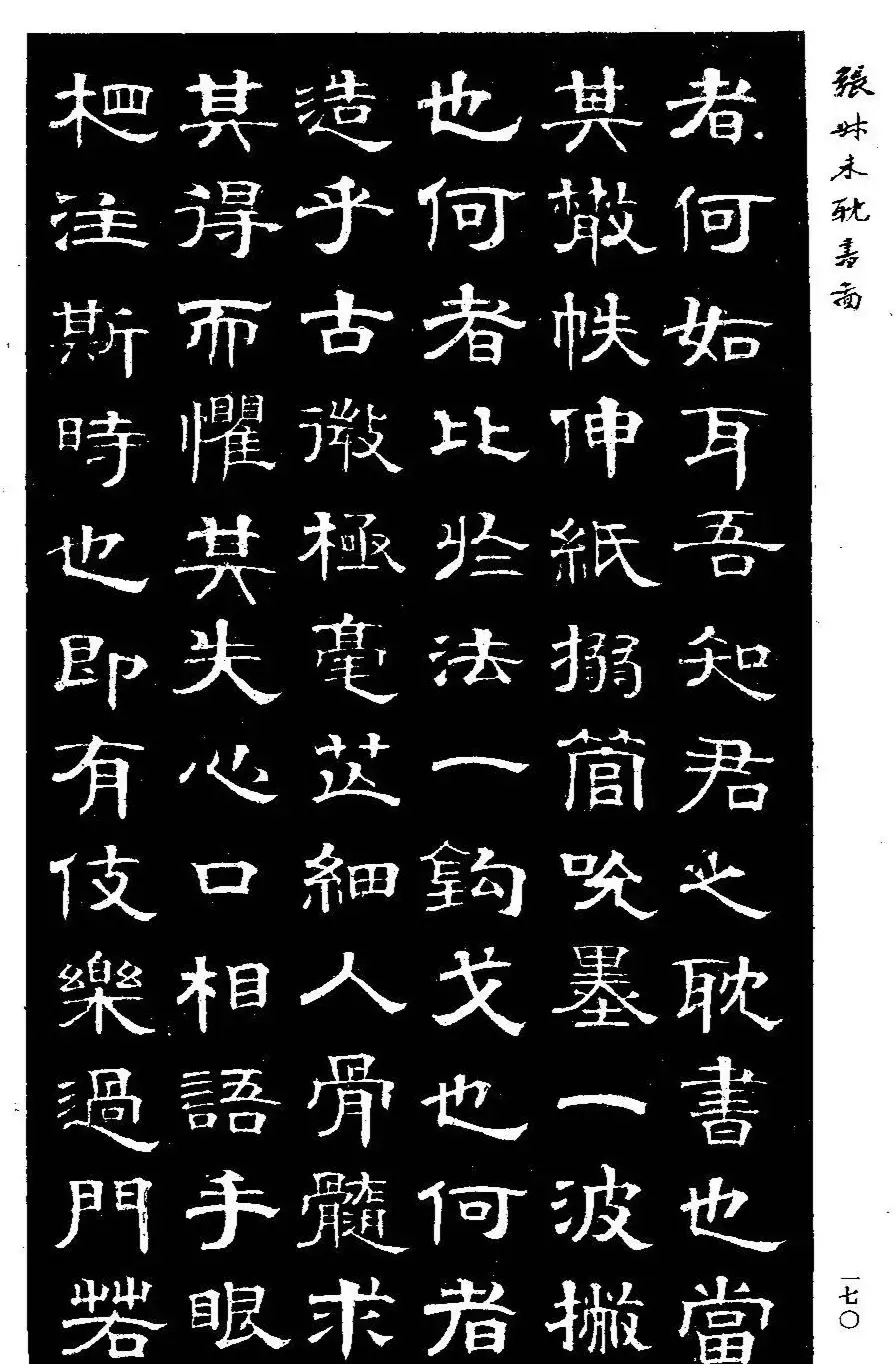 張叔未耽書圖
者何如耳吾知君之耽書也當
其散帙伸紙搦管吮墨一波撇
也何者比於法一鉤戈也何者
造乎古微極毫芒細人骨髓求
其得而懼其失心口相語手眼
杷注斯時也即有伎樂過門若
一七〇